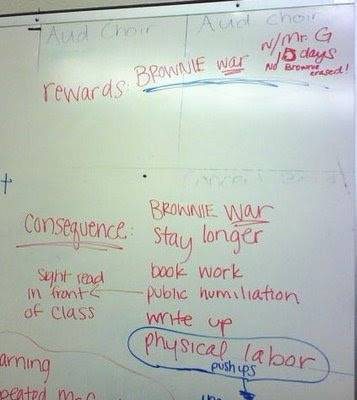 Aud Choir Aud Choir
rewards: BROWNIE war
w/Mr. G
15 days
No Brownie
erased!
Consequence:
BROWNIE war
stay longer
book work
public humiliation
sight read
in front
of class
write up
physical labor
pushups
arning